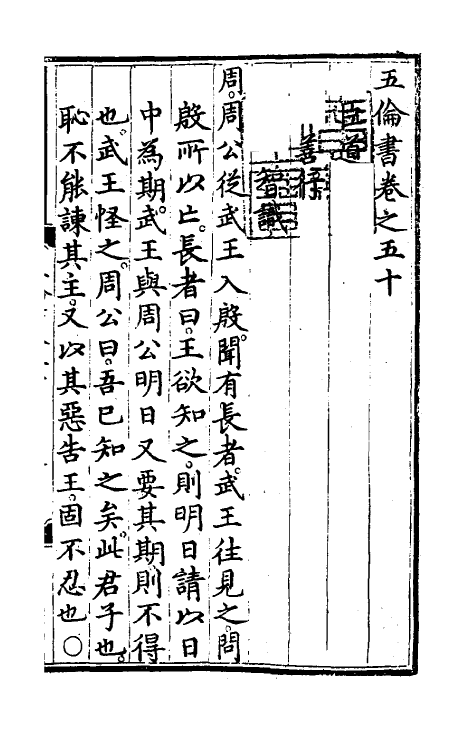 五倫書卷之五十
臣道
善行
智識
周。周公從武王入殷。聞有長者。武王往見之。問
殷所以亡。長者曰。王欲知之。則明日請以日
中為期。武王與周公明日又要其期則不得
也。武王怪之。周公曰。吾已知之矣。此君子也。
恥不能諫其主。又以其惡告王。固不忍也○